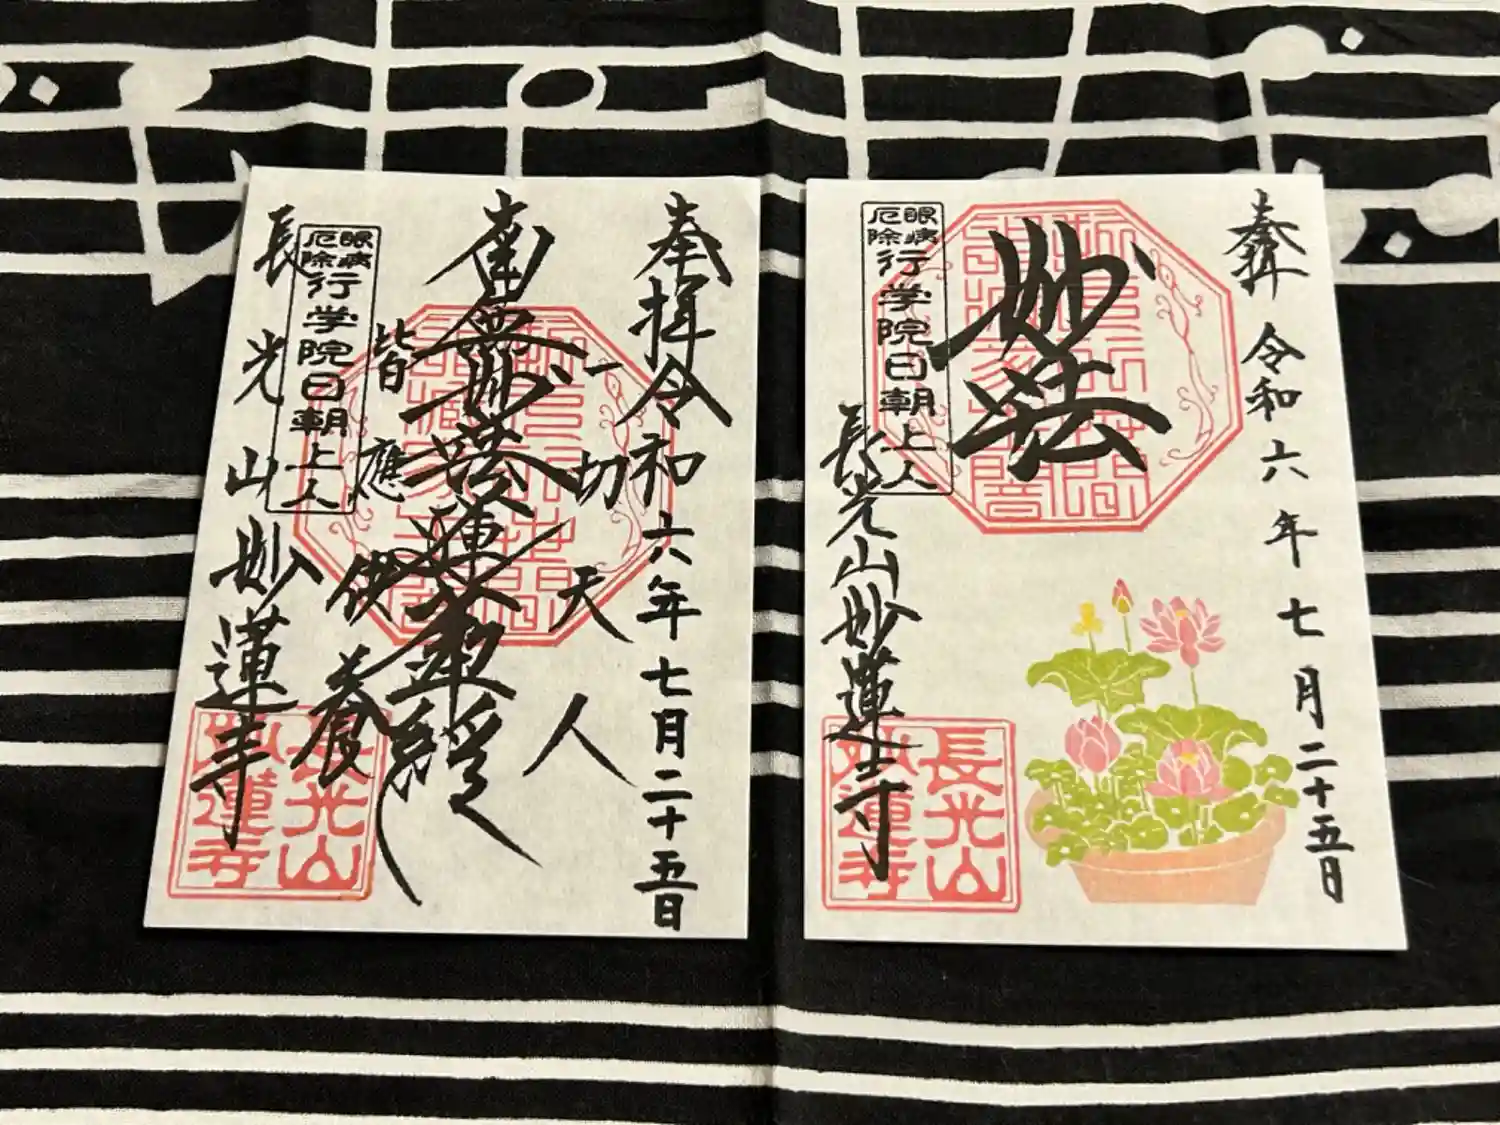 奉拝 令和六年七月二十五日
一切天人
南無妙法蓮華経
皆應供養
眼病
厄除
行学院日朝上人
長光山妙蓮寺
長光山
妙蓮寺
奉拝 令和六年七月二十五日
妙法
眼病
厄除
行学院日朝上人
長光山妙蓮寺
長光山
妙蓮寺